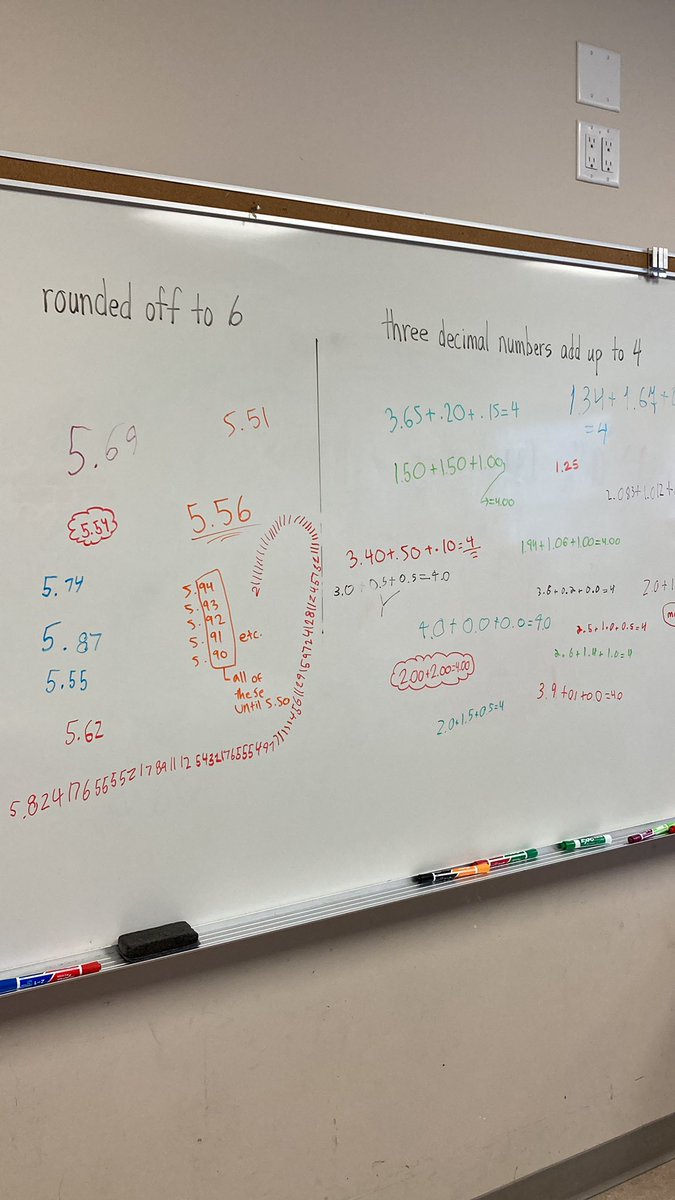 rounded off to 6
5.69
5.51
5.54
5.56
5.74
5.94
5.93
5.92
5.91
5.90
etc.
all of
these
until 5.50
5.87
5.55
5.62
three decimal numbers add up to 4
3.65+.20+.15=4
1.34+1.67+
=4
1.50+1.50+1.00
=4.00
1.25
3.40+.50+.10=4
1.94+1.06+1.00=4.00
3.0+0.5+0.5=4.0
3.8+0.2+0.0=4
2.0+1
4.0+0.0+0.0=4.0
2.5+1.0+0.5=4
2.00+2.00=4.00
3.9+0.1+0.0=4.0
2.0+1.5+0.5=4